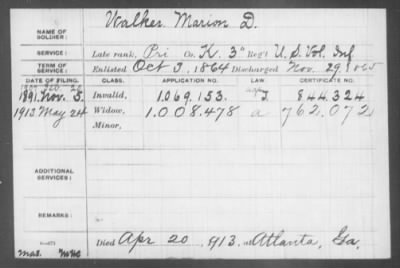 Walker, Marion D.
NAME OF SOLDIER:
SERVICE: Late rank, Pri Co. K. 3" Reg't U. S. Vol. Inf
TERM OF SERVICE: Enlisted Oct 3, 1864 Discharged Nov. 29, 1865
DATE OF FILING. CLASS. APPLICATION NO. LAW. CERTIFICATE NO.
1891. Nov. 5. Invalid, 1.069.153. J 844,324
1913. May 24 Widow, 1.008.478 a 762,072
Minor,
ADDITIONAL SERVICES:
REMARKS:
Died Apr 20, 1913. at Atlanta, Ga.